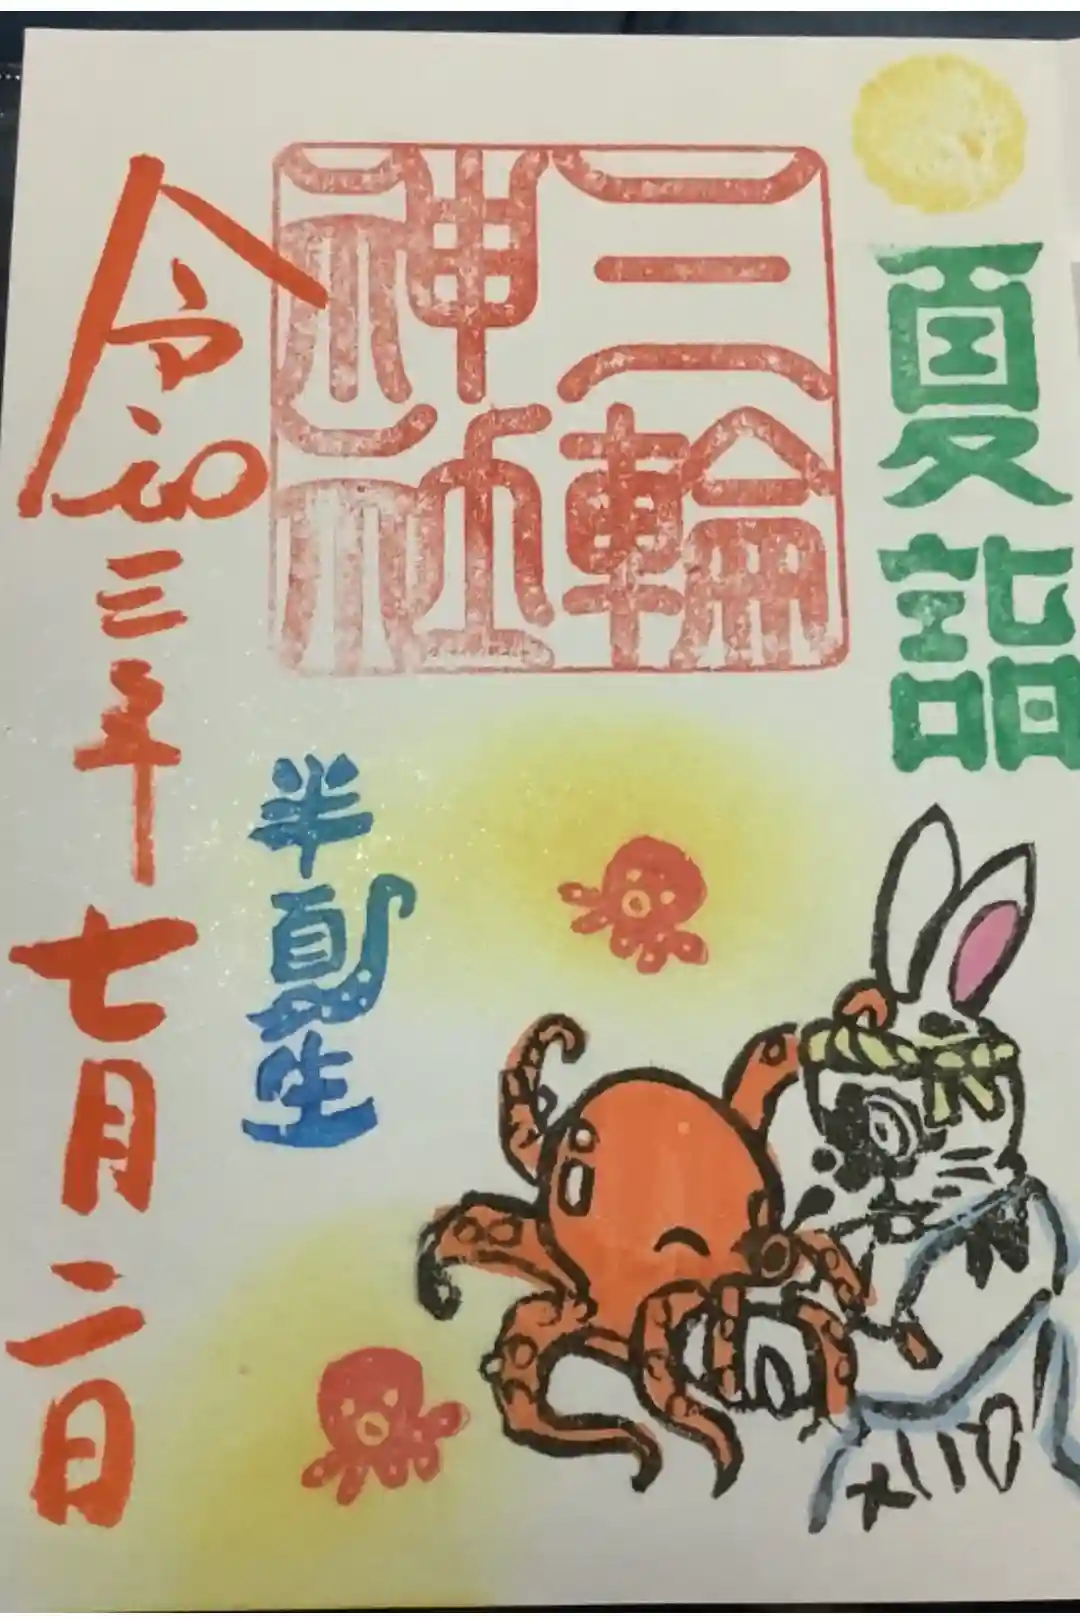 夏詣
三輪
神社
半夏生
令和三年七月二日